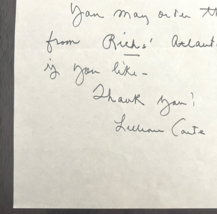 You may order th
from Rich's' Atlant
if you like -
Thank you!
Lillian Carte